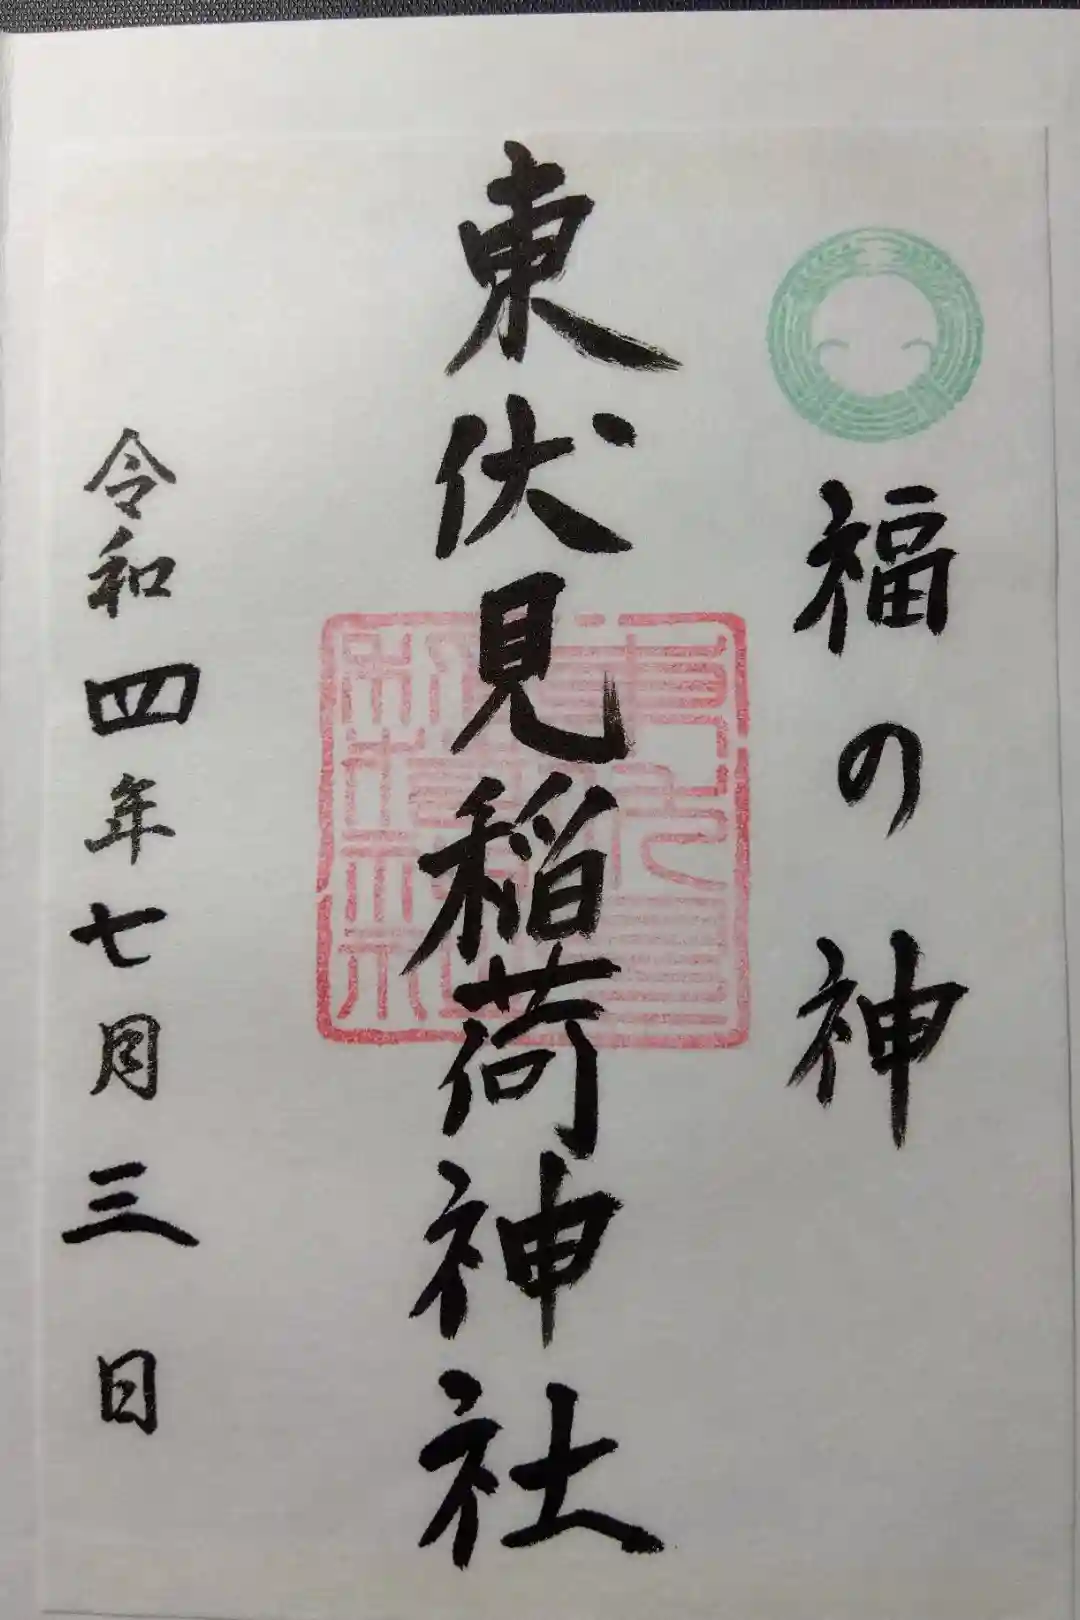 福の神
東伏見稲荷神社
令和四年七月三日